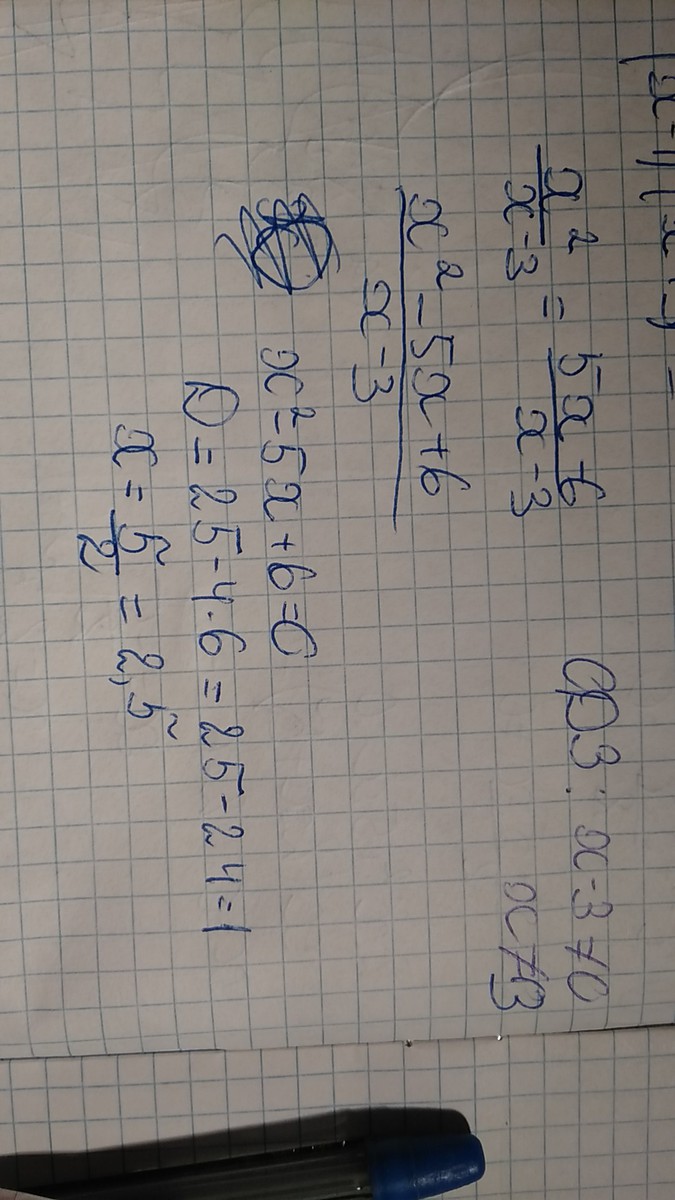 x² / x-3 = 5x+6 / x-3
ОДЗ: x-3≠0
x≠3
x²-5x+6 / x-3
x²-5x+6=0
D=25-4·6=25-24=1
x=5/2=2,5